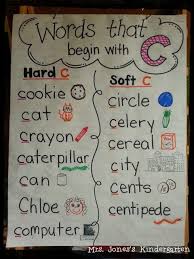 Words that
begin with C
Hard C
cookie
cat
crayon
caterpillar
can
Chloe
computer
Soft C
circle
celery
cereal
city
cents
centipede
Mrs. Jones's Kindergarten